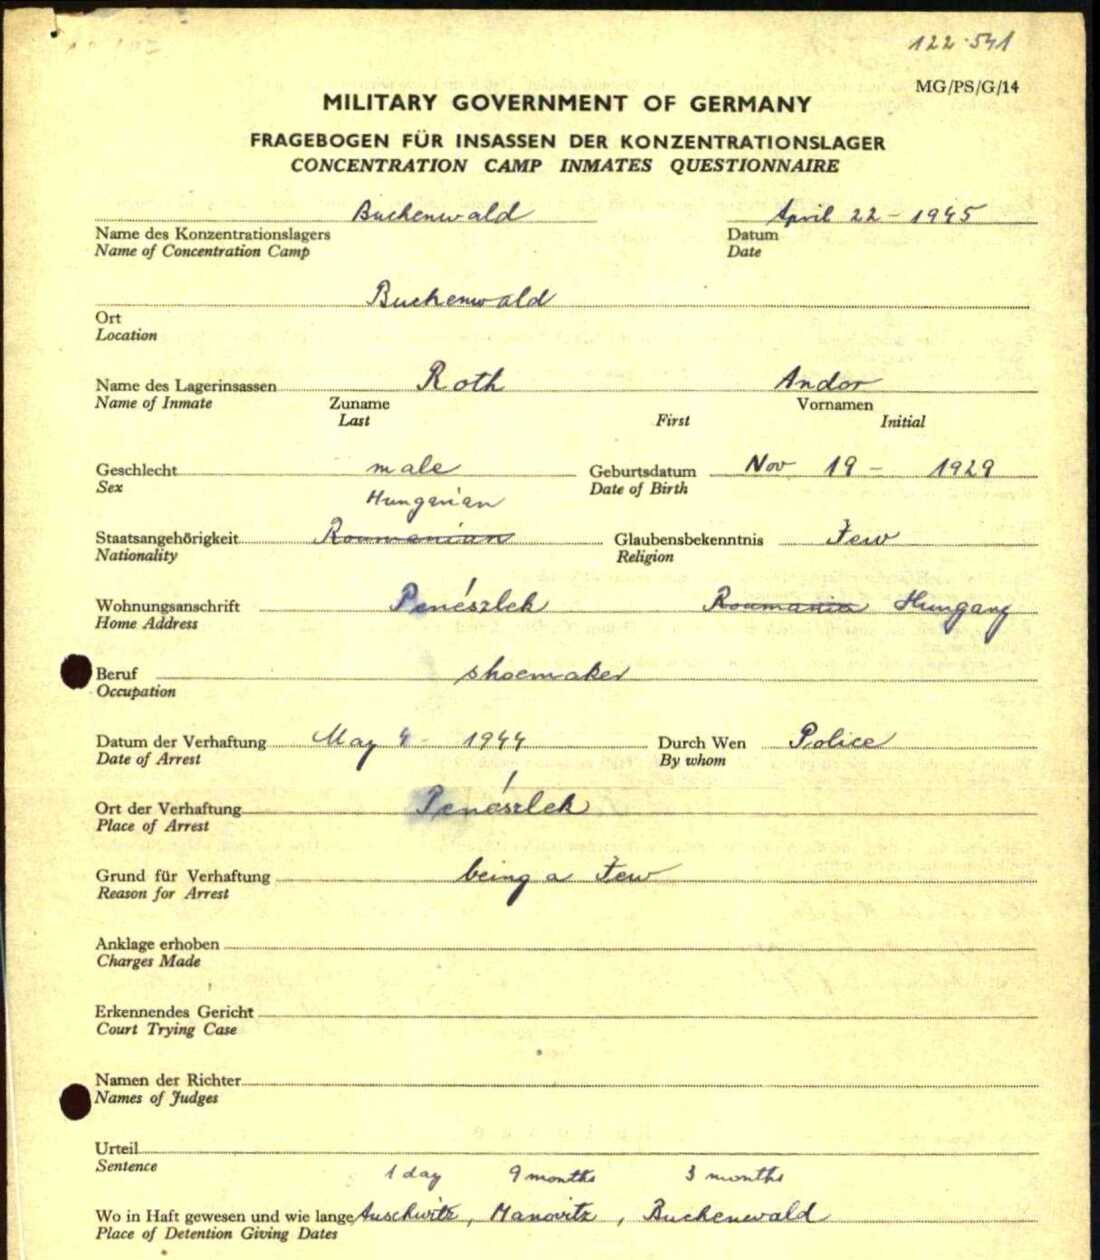 122-541
MG/PS/G/14
MILITARY GOVERNMENT OF GERMANY
FRAGEBOGEN FÜR INSASSEN DER KONZENTRATIONSLAGER
CONCENTRATION CAMP INMATES QUESTIONNAIRE
Buchenwald April 22 - 1945
Name des Konzentrationslagers Datum
Name of Concentration Camp Date
Buchenwald
Ort
Location
Name des Lagerinsassen Roth Andor
Name of Inmate Zuname Vornamen
Last First Initial
Geschlecht male Geburtsdatum Nov 19 - 1929
Sex Date of Birth
Hungarian
Staatsangehörigkeit Roumanian Glaubensbekenntnis Jew
Nationality Religion
Wohnungsanschrift Penészlek Roumania Hungary
Home Address
Beruf shoemaker
Occupation
Datum der Verhaftung May 4 - 1944 Durch Wen Police
Date of Arrest By whom
Ort der Verhaftung Penészlek
Place of Arrest
Grund für Verhaftung being a Jew
Reason for Arrest
Anklage erhoben
Charges Made
Erkennendes Gericht
Court Trying Case
Namen der Richter
Names of Judges
Urteil
Sentence 1 day 9 months 3 months
Wo in Haft gewesen und wie lange Auschwitz, Manovitz, Buchenwald
Place of Detention Giving Dates